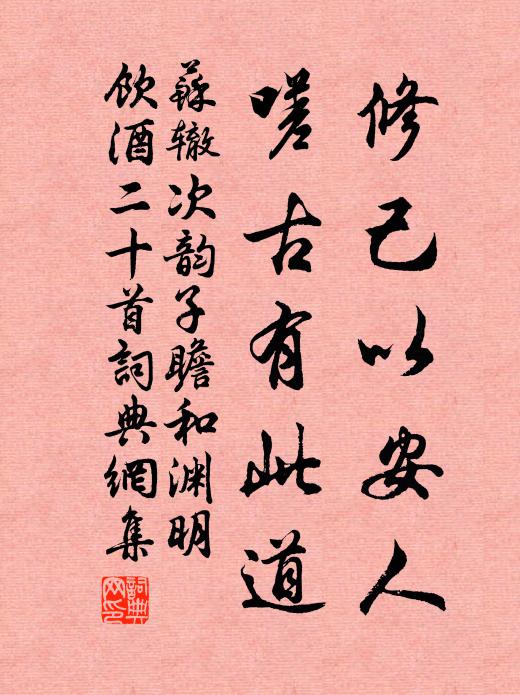 修己以安人
嗟古有此道
蘇辙次韵子瞻和渊明
飲酒二十首詞典網集
詞典网印